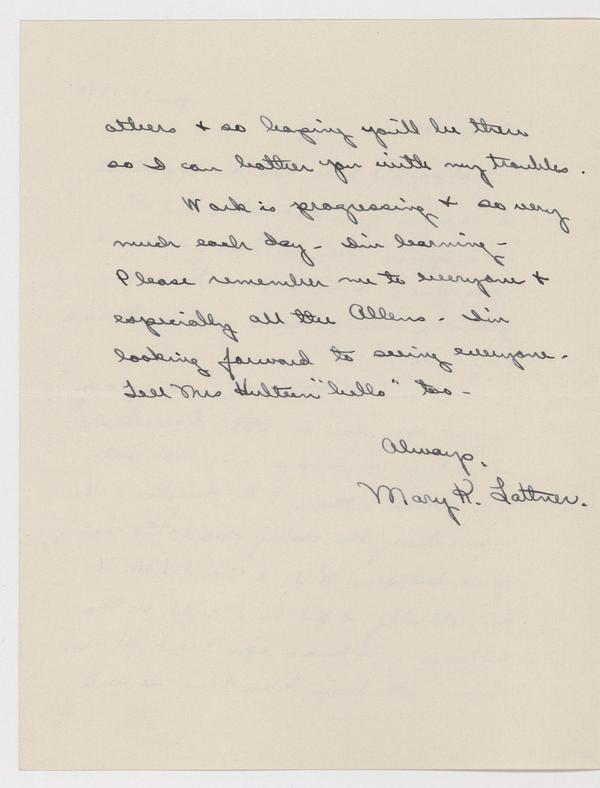 others & so hoping you'll be there
so I can bother you with my troubles.
Work is progressing & so very
much each day - I'm learning -
Please remember me to everyone &
especially all the Allens - I'm
looking forward to seeing everyone -
Tell Mrs Hulteen "hello" too -
Always,
Mary K. Lattner.